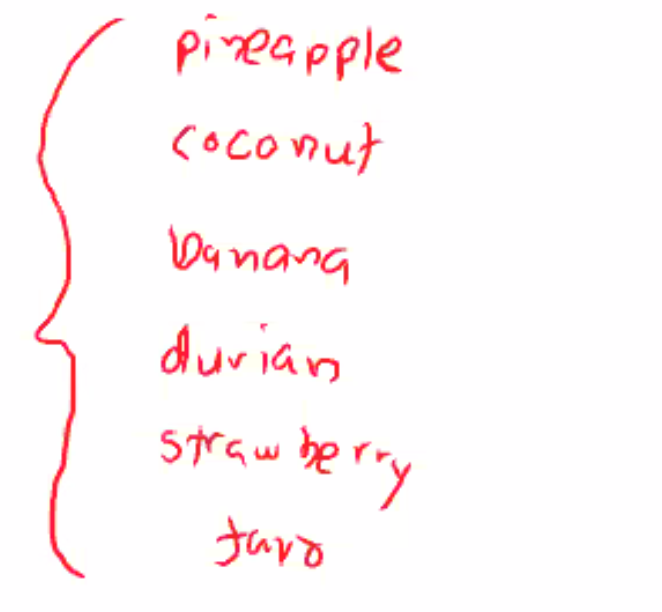 pineapple
coconut
banana
durian
strawberry
taro